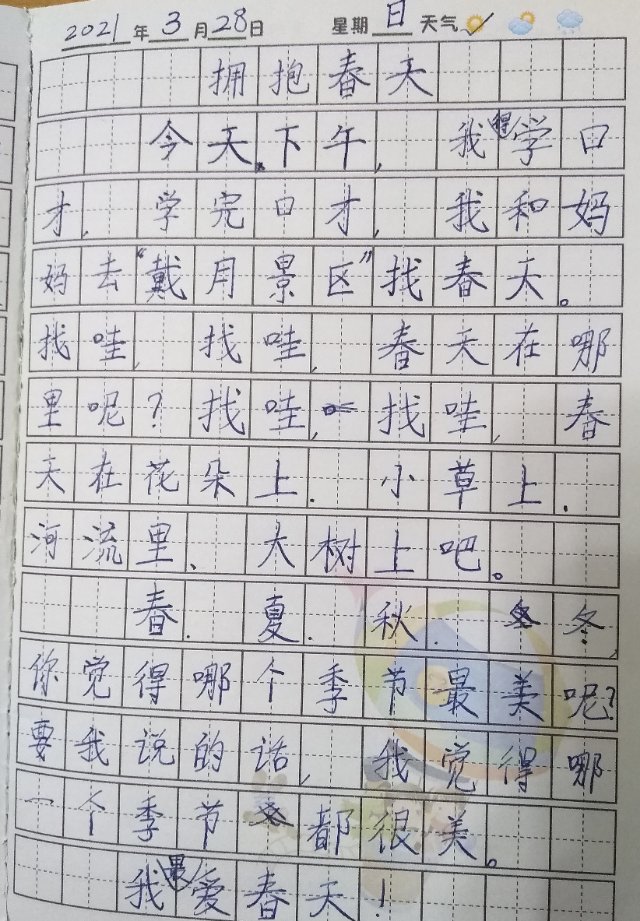 2021年3月28日 星期日 天气
拥抱春天
今天下午,我得学口
才,学完口才,我和妈
妈去“戴周景区”找春天。
找哇,找哇,春天在哪
里呢?找哇,找哇,春
天在花朵上、小草上、
河流里、大树上吧。
春、夏、秋、冬,
你觉得哪个季节最美呢?
要我说的话,我觉得哪
一个季节都很美。
我最爱春天!